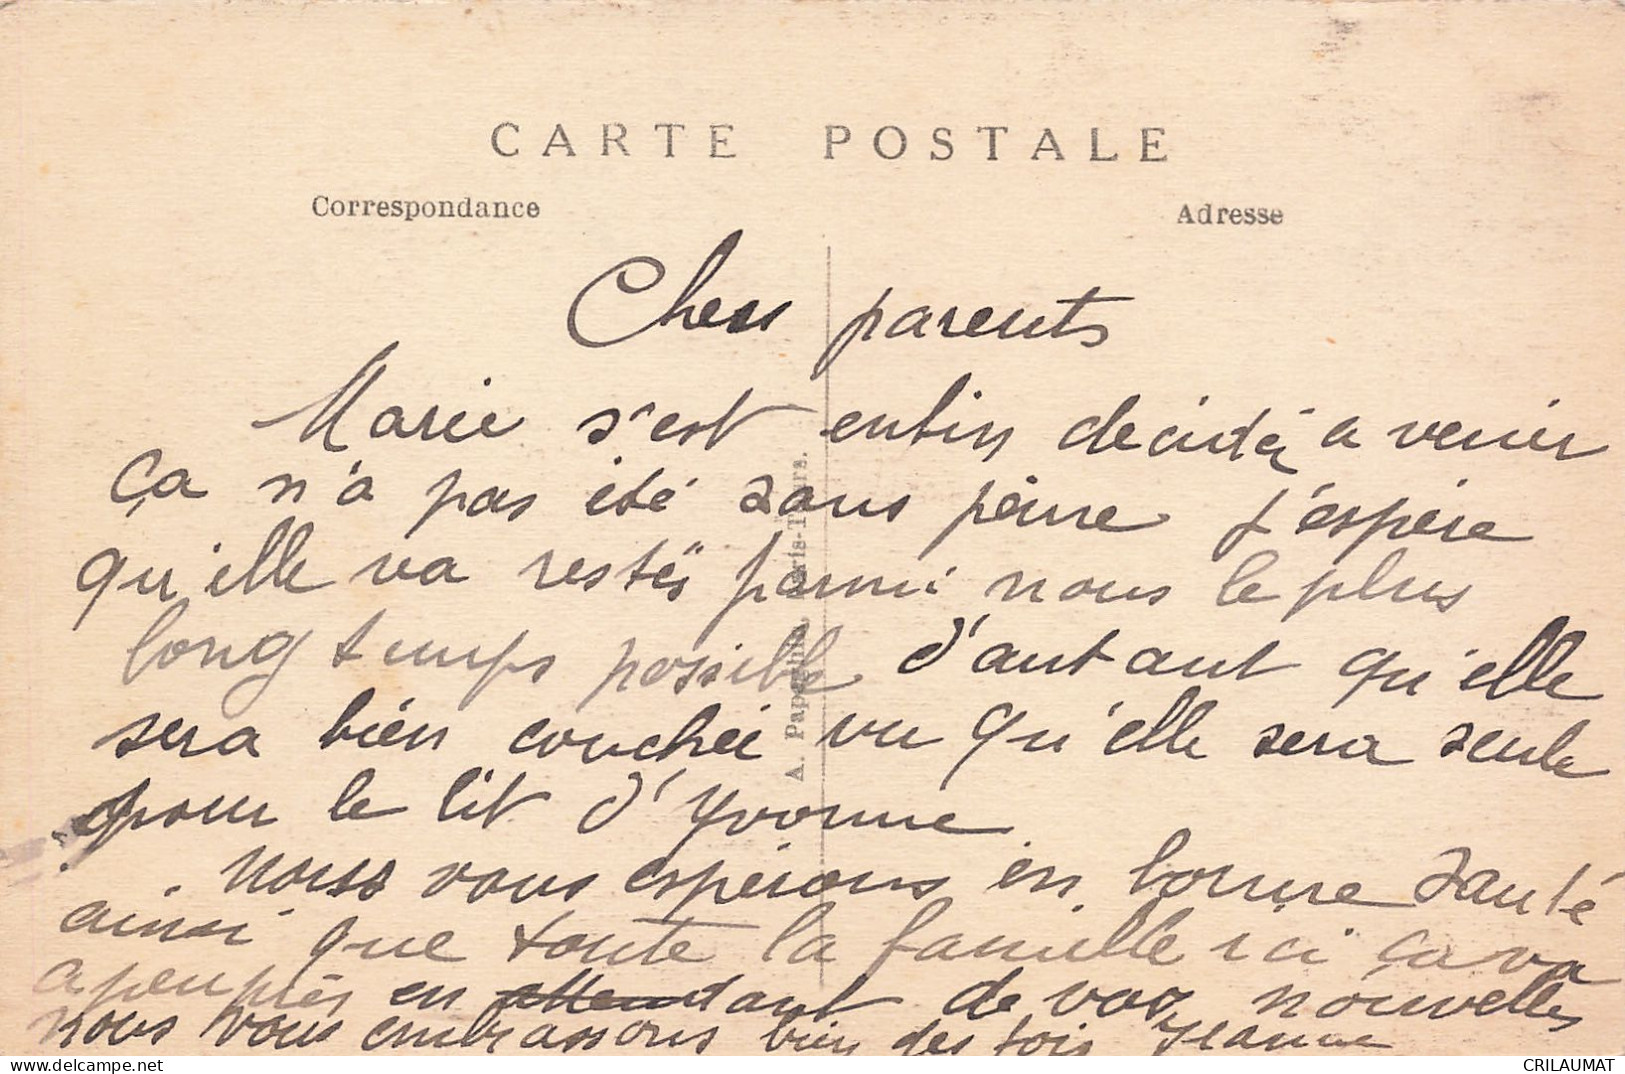 CARTE POSTALE
Correspondance
Adresse
Chers parents
Marie s'est enfin decidé a venir
ça n'a pas été sans peine j'espère
qu'elle va restér parmi nous le plus
long temps possible d'autant qu'elle
sera bien couchée vu qu'elle sera seule
pour le lit d'Yvonne
Nous vous espérons en bonne santé
ainsi que toute la famille ici ça va
a peu près en attendant de vos nouvelles
nous vous embrassons bien des fois Jeanne
A. Papeghin, Paris-Tours.
delcampe.net
CRILAUMAT